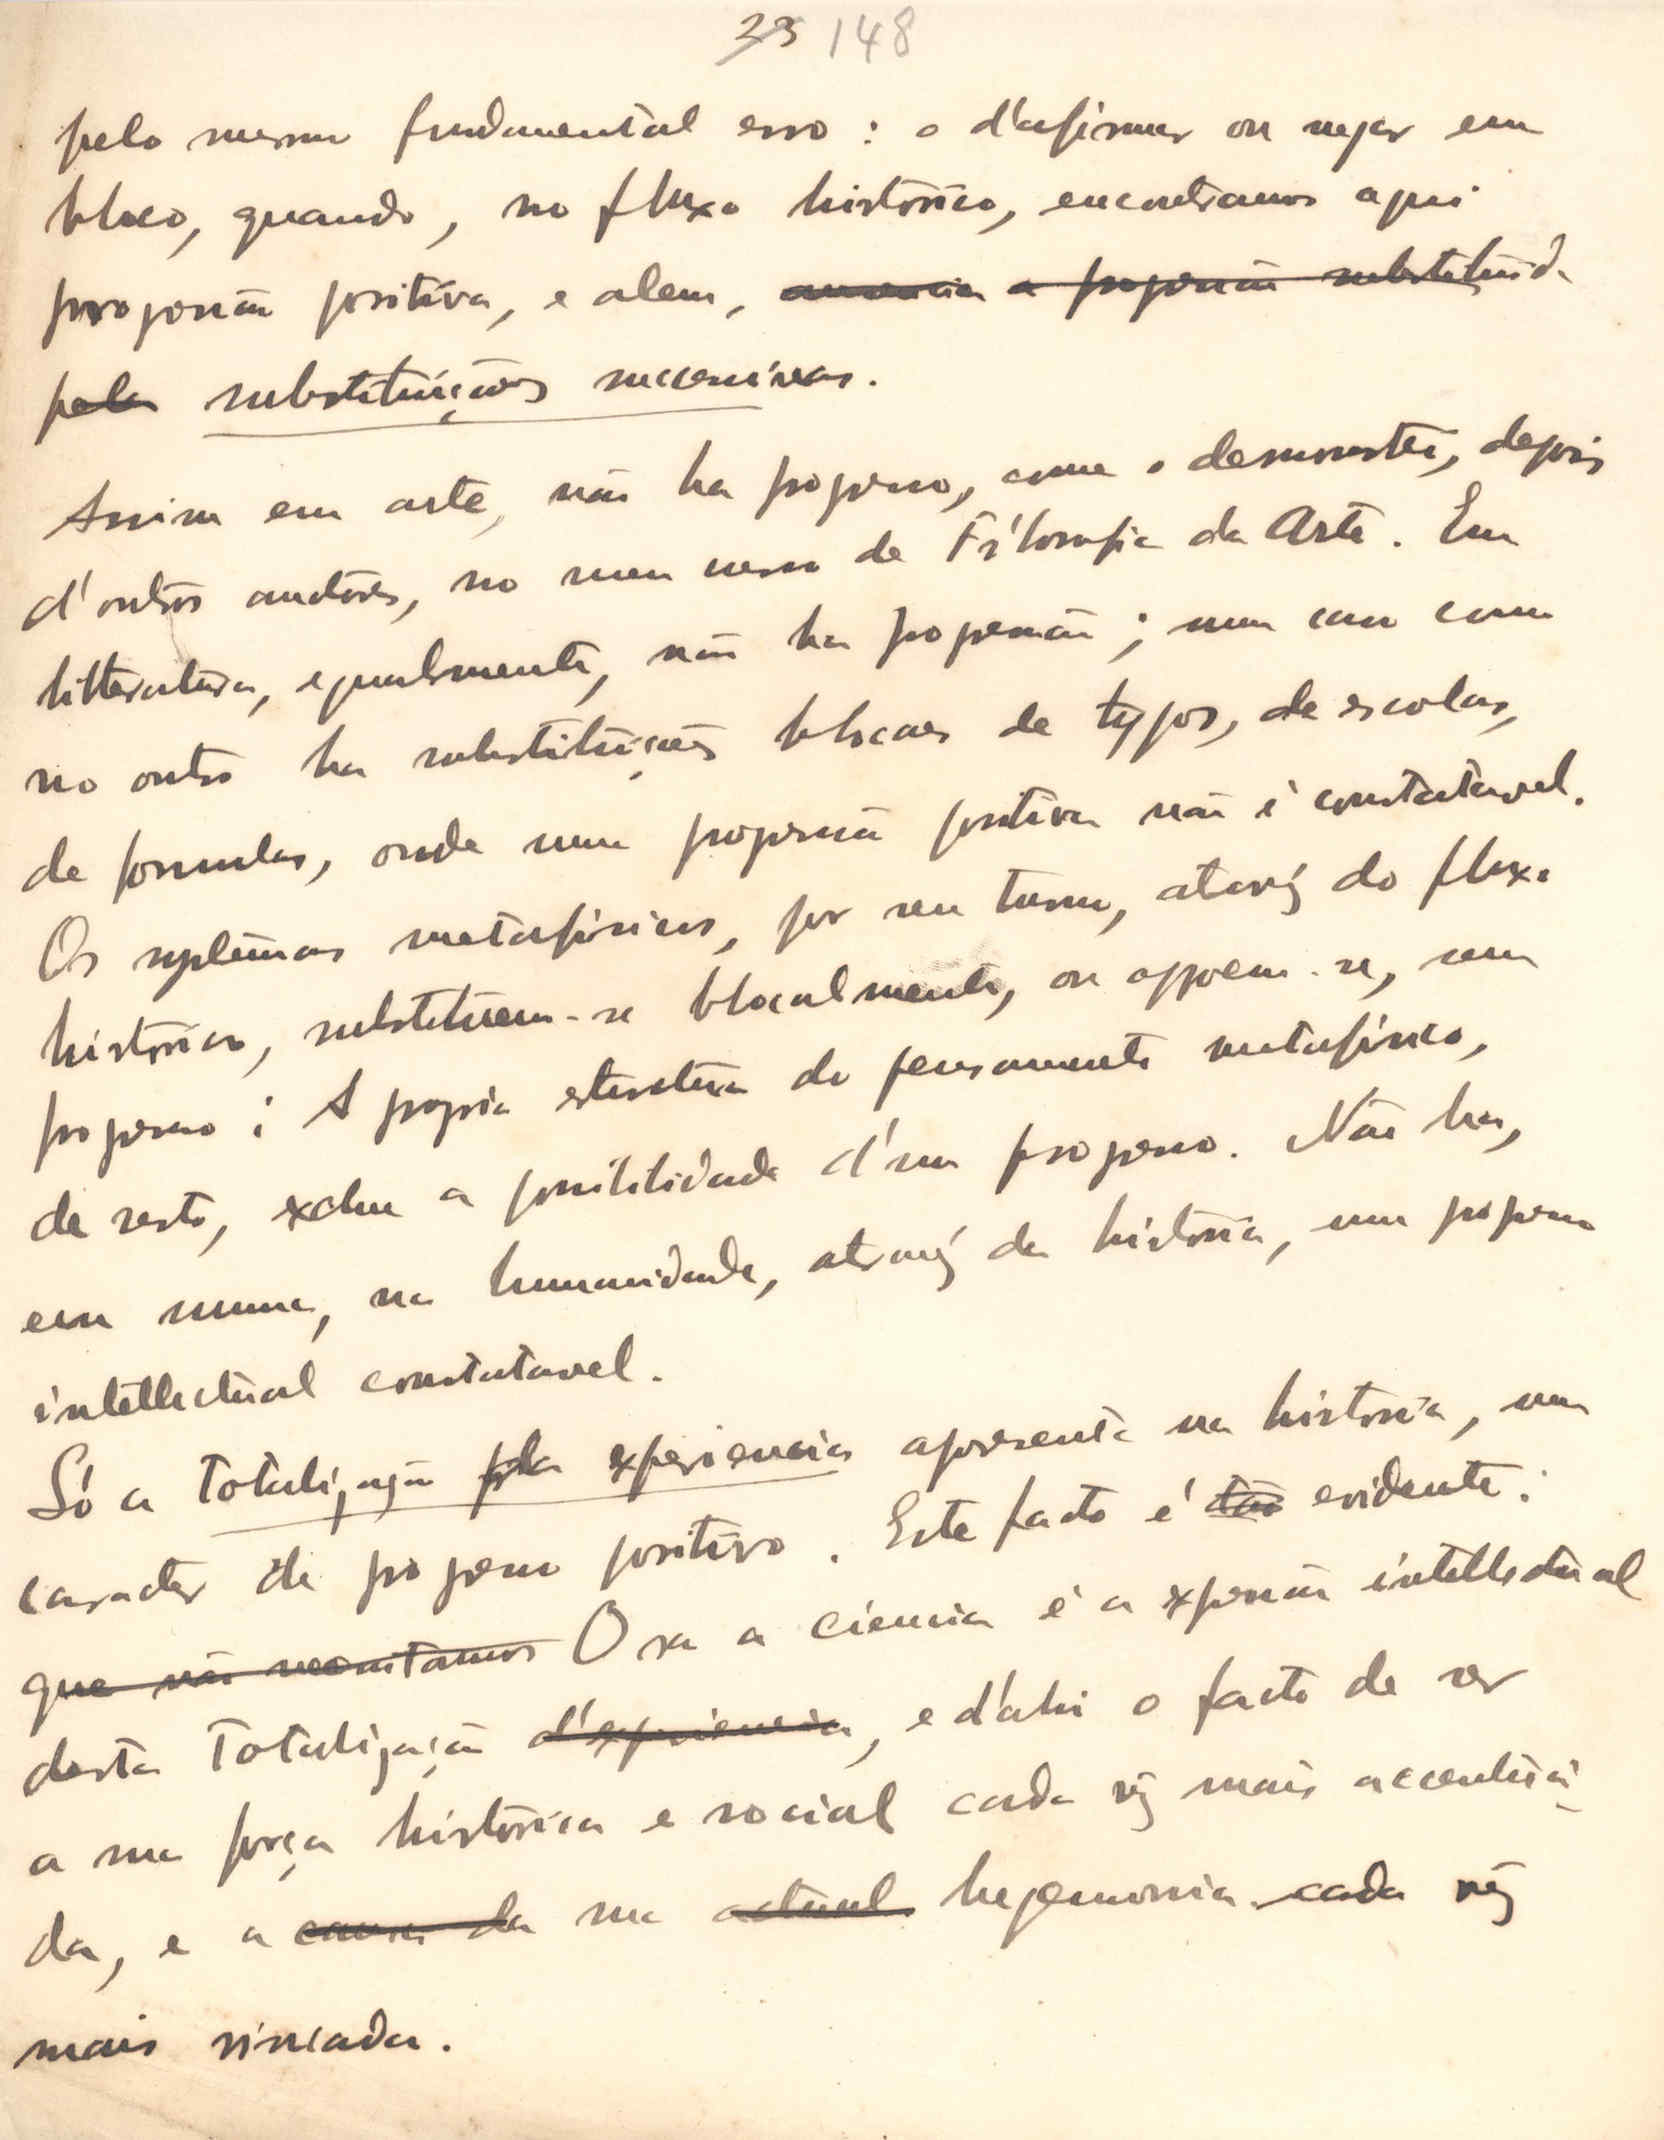 23 148
pelo mesmo fundamental erro : o d'afirmar ou negar em
bloco, quando, no fluxo histórico, encontramos aqui
progressão positiva, e alem, a progressão substituida
pela substituições successivas.
Assim em arte, não ha progresso, como o demonstrei, depois
d'outros auctores, no meu curso de Filosofia da Arte. Em
litteratura, egualmente, não ha progressão ; num caso como
no outro ha substituições blocaes de typos, de escolas,
de formulas, onde uma progressão positiva não é constatavel.
Os systemas metafisicos, por seu turno, atravéz do fluxo
histórico, substituem-se blocalmente, ou oppoem-se, sem
progresso ; A propria estructura do pensamento metafisico,
de resto, exclue a possibilidade d'um progresso. Não ha,
em summa, na humanidade, atravéz da historia, um progresso
intellectual constatavel.
Só a totalização pela experiencia apresenta na historia, um
caracter de progresso positivo. Este facto é tão evidente:
que não necessitamos Ora a ciencia é a expressão intellectual
desta totalização d'experiencia, e d'ahi o facto de ser
a sua força histórica e social cada vez mais accentua-
da, e a causa da sua actual hegemonia cada vez
mais vincada.